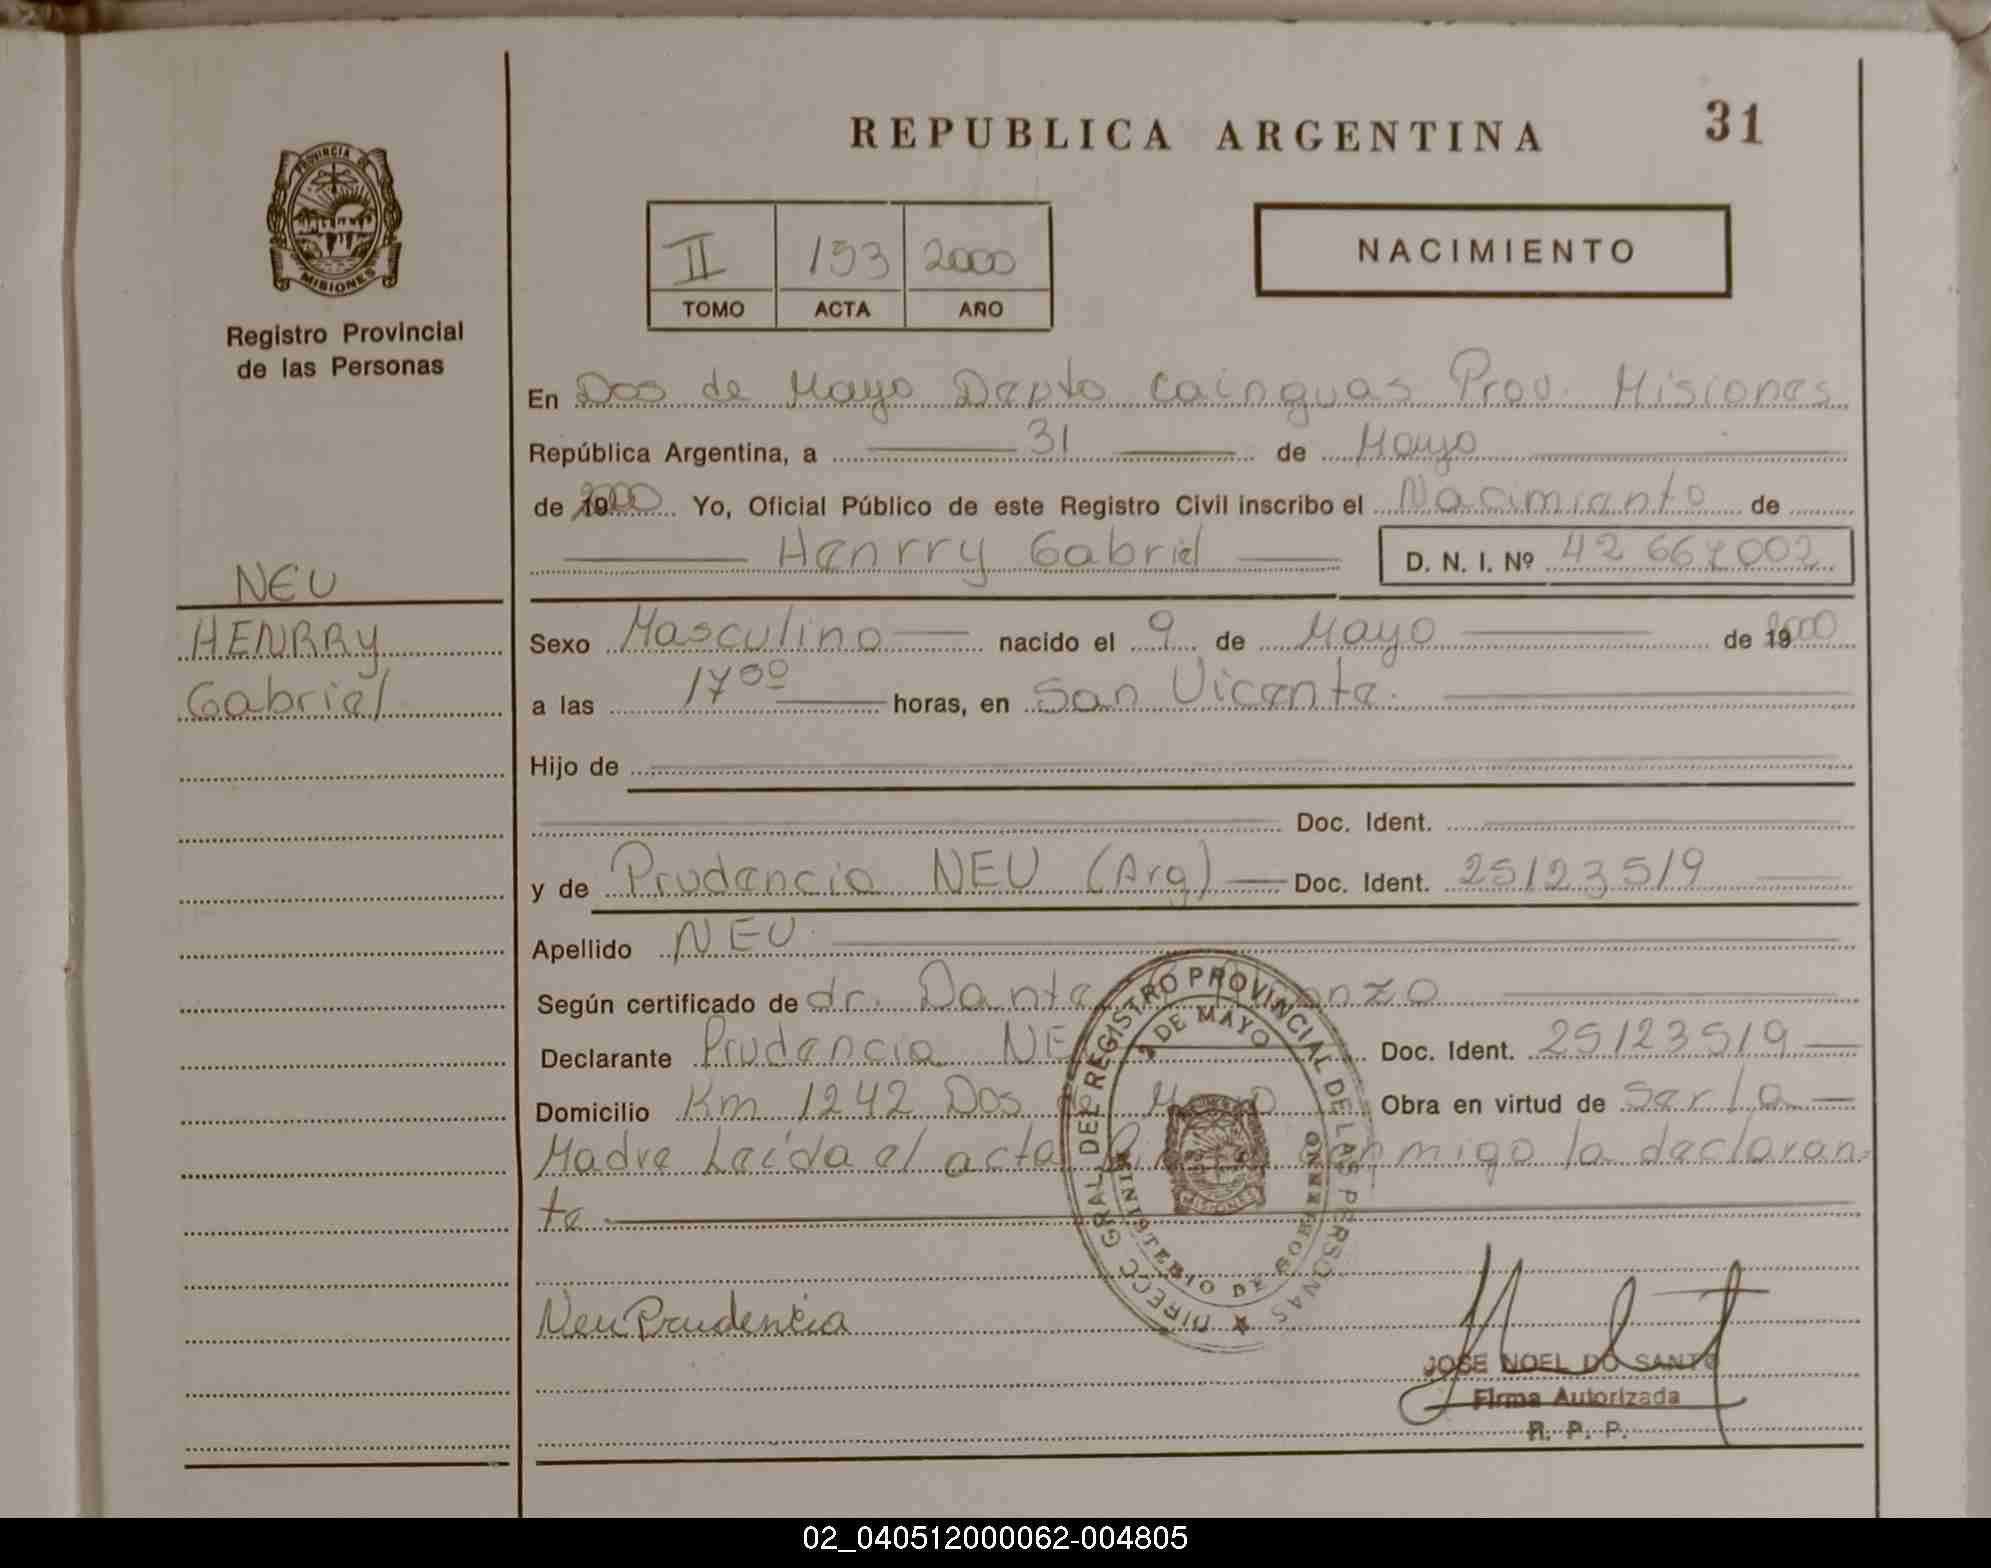 REPUBLICA ARGENTINA
31
PROVINCIA DE
MISIONES
Registro Provincial
de las Personas
II 193 2000
TOMO ACTA AÑO
NACIMIENTO
En Dos de Mayo Depto Cainguas Prov. Misiones
República Argentina, a 31 de Mayo
de 2000 Yo, Oficial Público de este Registro Civil inscribo el Nacimiento de
Henrry Gabriel D. N. I. Nº 42 667 002
NEU
HENRRY
Gabriel
Sexo Masculino nacido el 9 de Mayo de 2000
a las 17 00 horas, en San Vicente.
Hijo de
Doc. Ident.
y de Prudencia NEU (Arg) Doc. Ident. 25123519
Apellido NEU.
Según certificado de dr. Dante
Declarante Prudencia NEU Doc. Ident. 25123519
Domicilio Km 1242 Dos de Mayo Obra en virtud de Ser la
Madre Leída el acta conmigo la declaran=
te
DIRECC. GRAL. DEL REGISTRO PROVINCIAL DE LAS PERSONAS
2 DE MAYO
MINISTERIO DE GOBIERNO
MISIONES
Neu Prudencia
JOSE NOEL DO SANTO
Firma Autorizada
R. P. P.
02_040512000062-004805